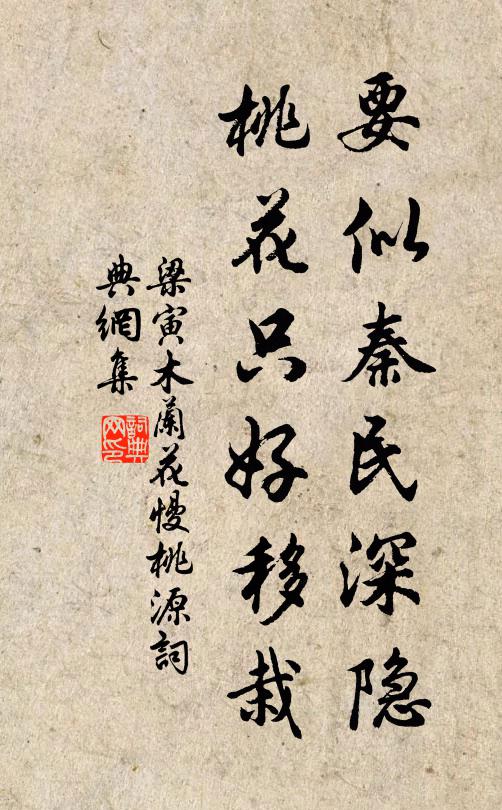 要似秦民深隐
桃花只好移栽
梁寅木蘭花慢桃源詞
典網集
詞典网印